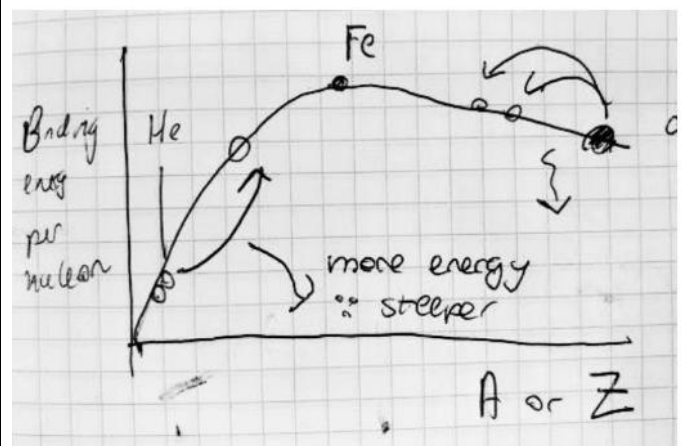 Fe
He
Binding
energy
per
nucleon
more energy
∵ steeper
A or Z